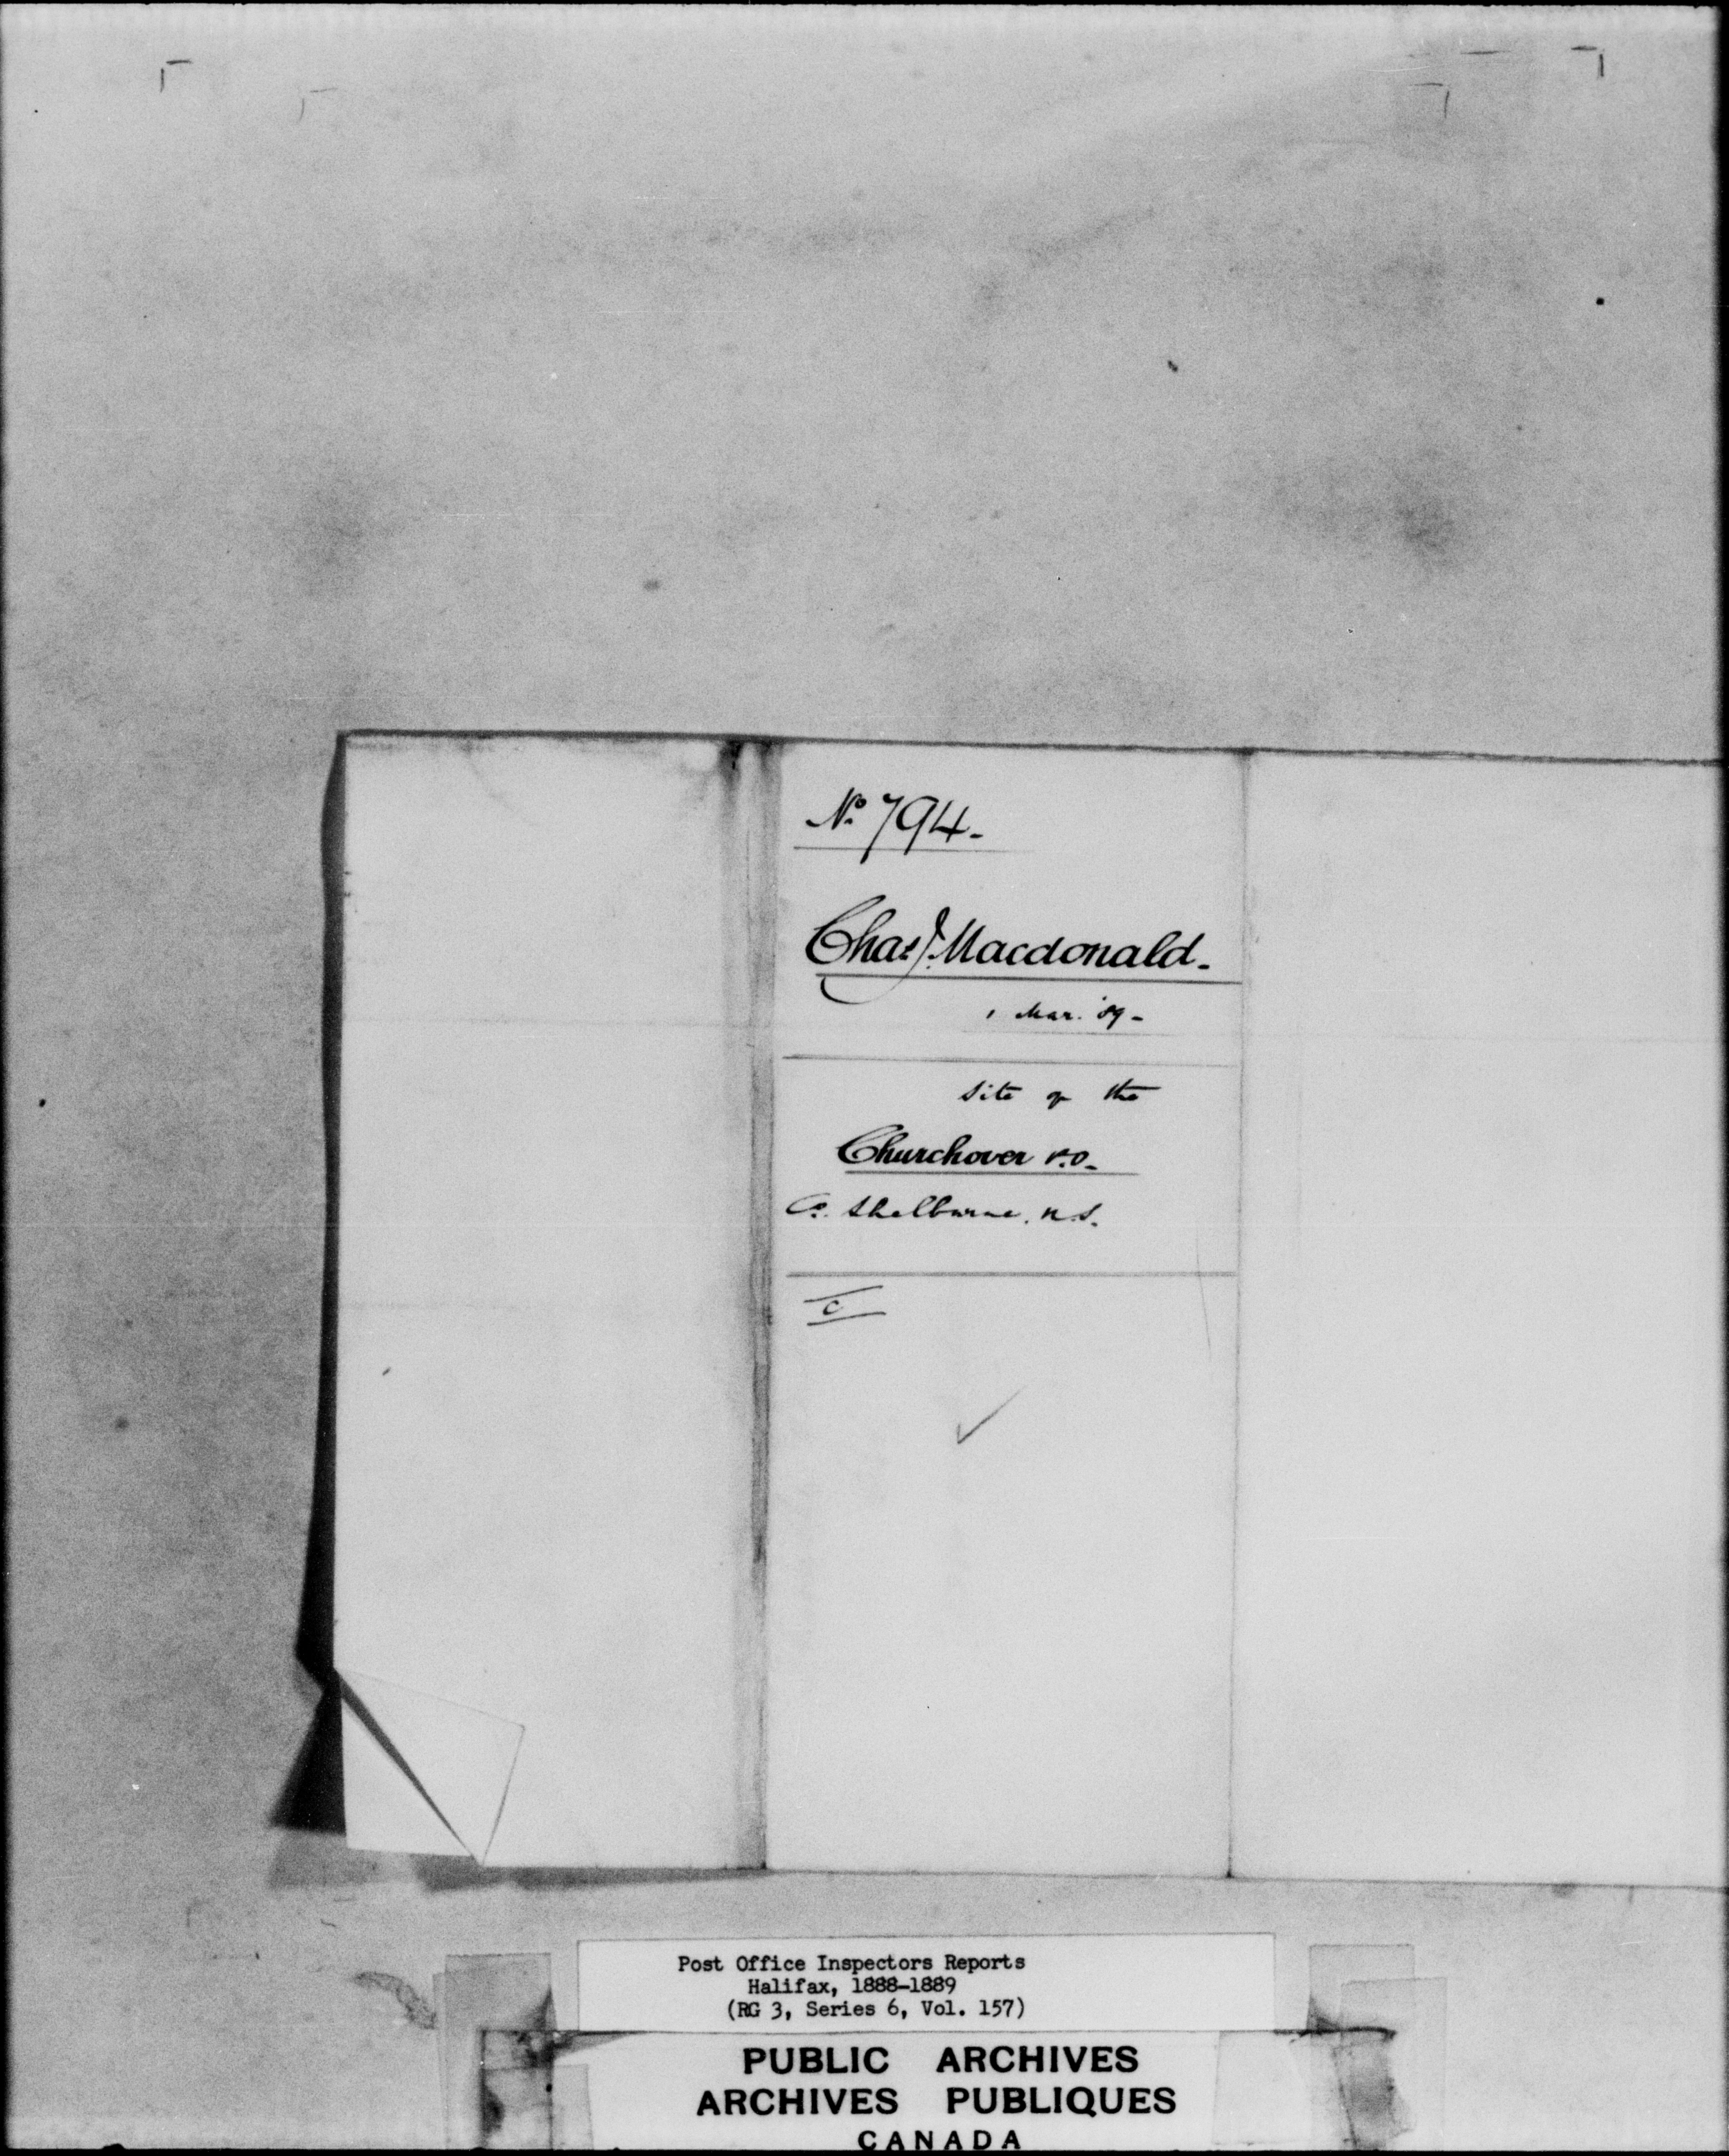 No. 794.
Chas. J. Macdonald.
1 Mar. '89.
Site of the
Churchover P.O.
Co. Shelburne. N.S.
C
Post Office Inspectors Reports
Halifax, 1888-1889
(RG 3, Series 6, Vol. 157)
PUBLIC ARCHIVES
ARCHIVES PUBLIQUES
CANADA